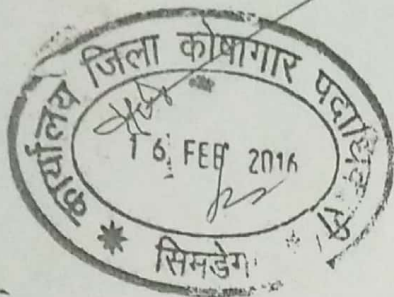 कार्यालय जिला कोषागार पदाधिकारी
16 FEB 2016
सिमडेगा